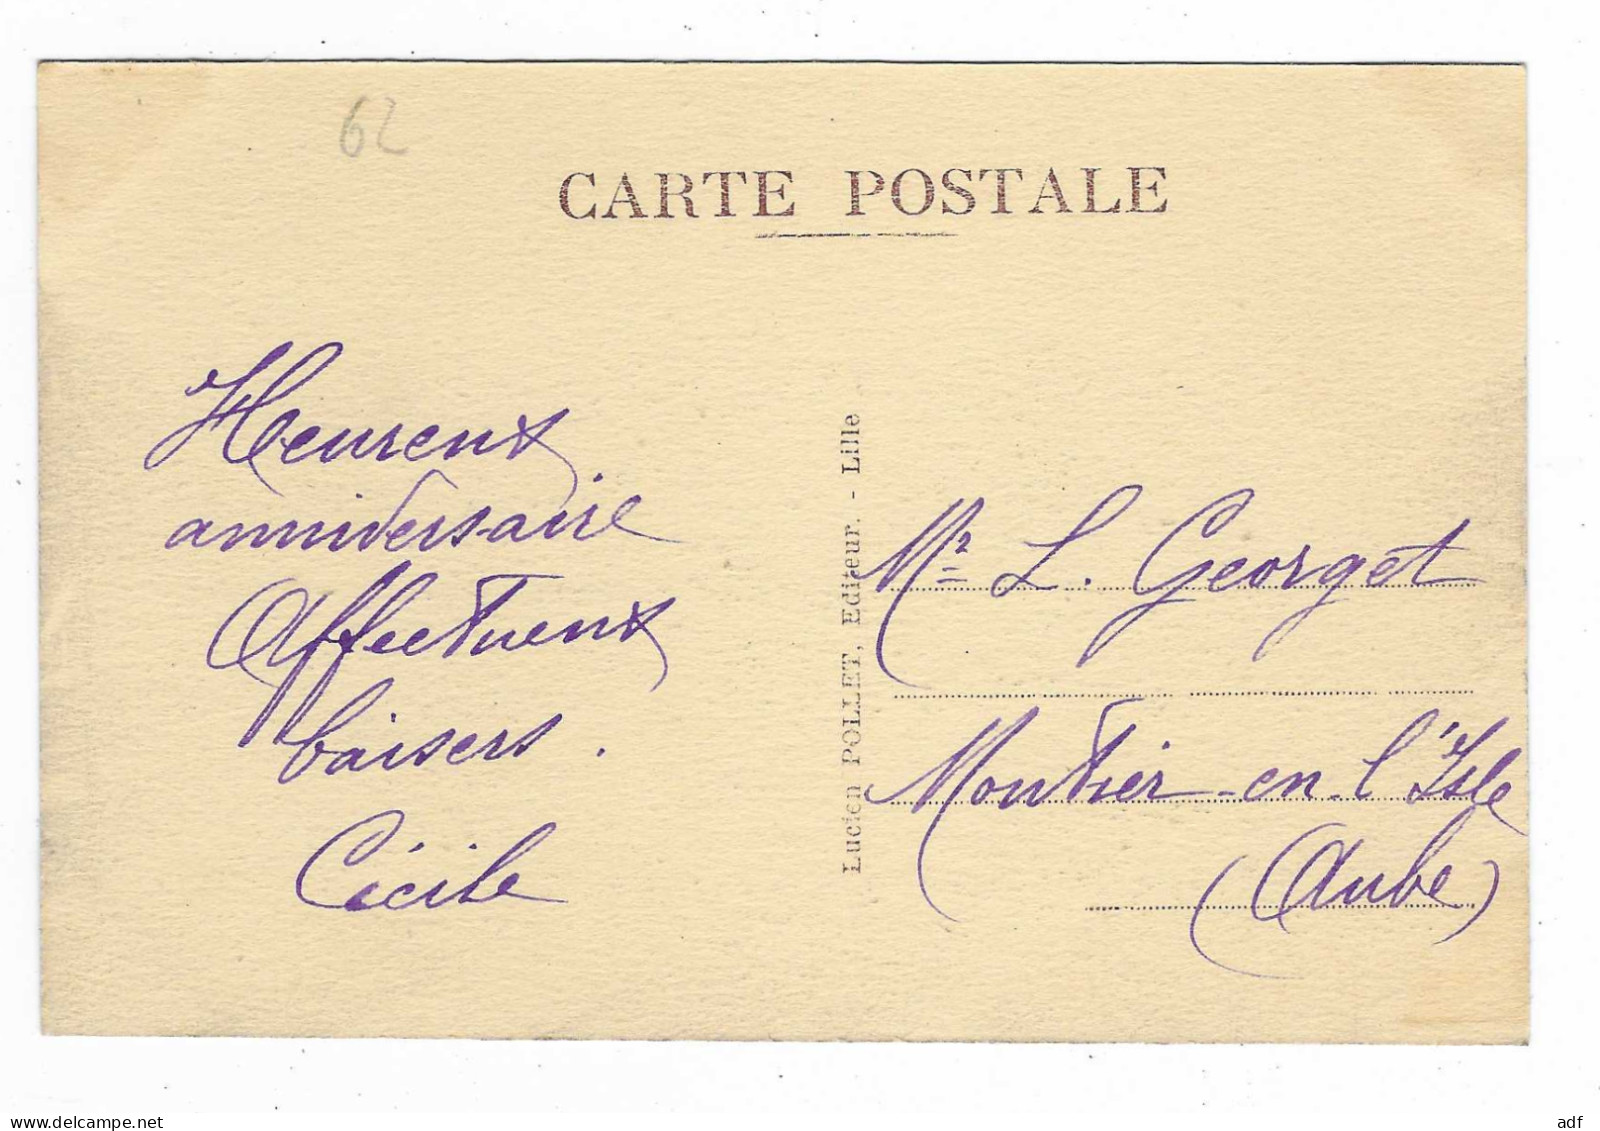 62
CARTE POSTALE
Heureux
anniversaire
Affectueux
baisers.
Cécile
Lucien POLLET, Editeur. - Lille
Mr L. Georget
Montier-en-l'Isle
(Aube)
www.delcampe.net
adf